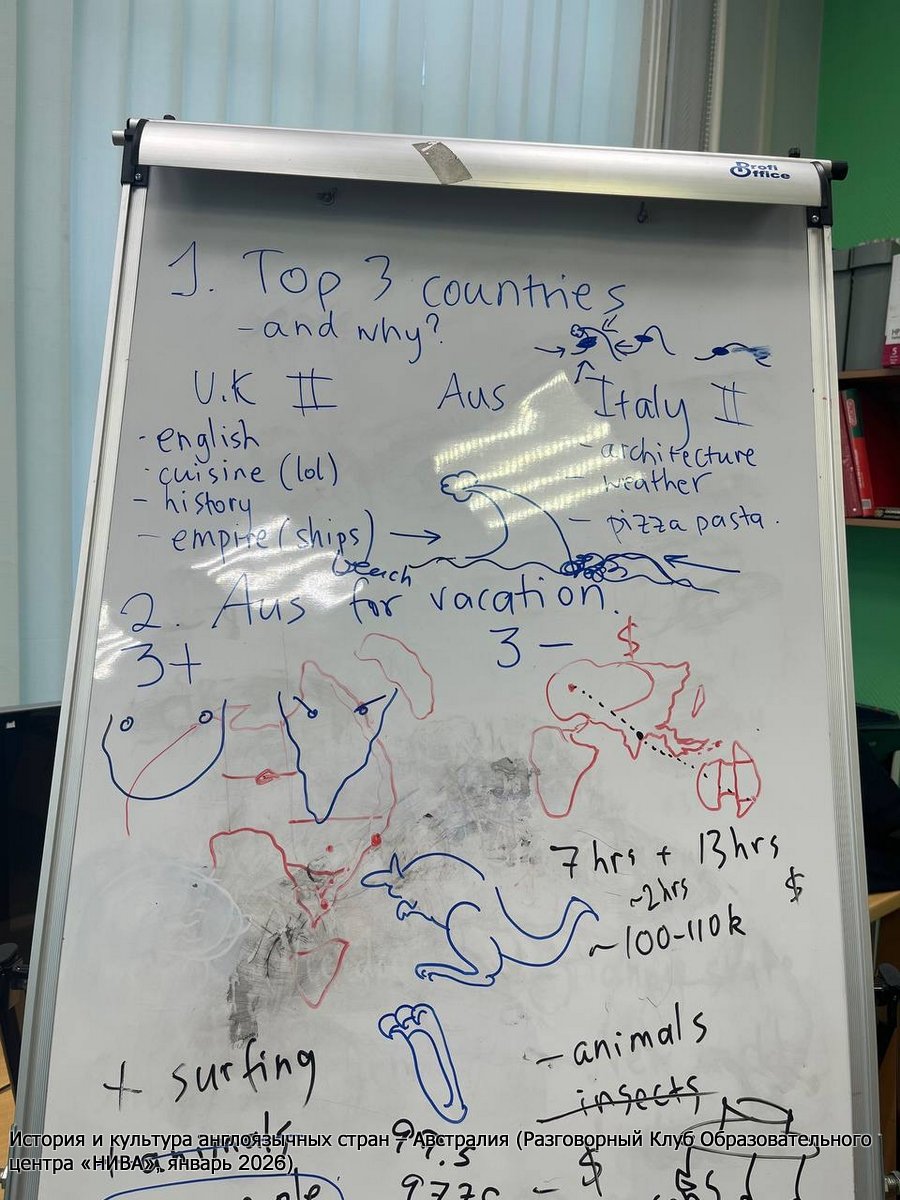 Profi Office
1. Top 3 countries
- and why?
U.K II
Aus
Italy II
- english
- cuisine (lol)
- history
- empire (ships)
- architecture
- weather
- pizza pasta.
beach
2. Aus for vacation.
3+
3 -
$
7 hrs + 13 hrs
~2 hrs
$
~100-110k
+ surfing
- animals
- insects
99.5
$
История и культура англоязычных стран - Австралия (Разговорный Клуб Образовательного
центра «НИВА», январь 2026)